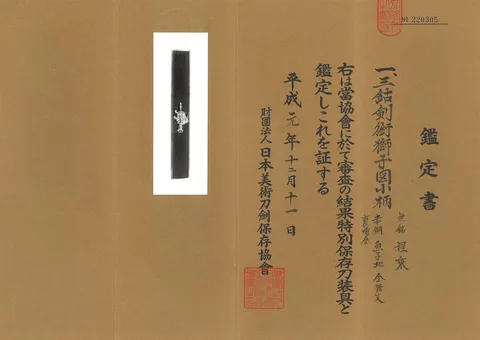 № 220305
鑑定書
一、三鈷剣銜獅子図小柄
無銘 程乗
赤銅魚子地 金紋
裏哺金
右は當協會に於て審査の結果特別保存刀装具と
鑑定しこれを証する
平成元年十二月十一日
財團法人 日本美術刀劍保存協會